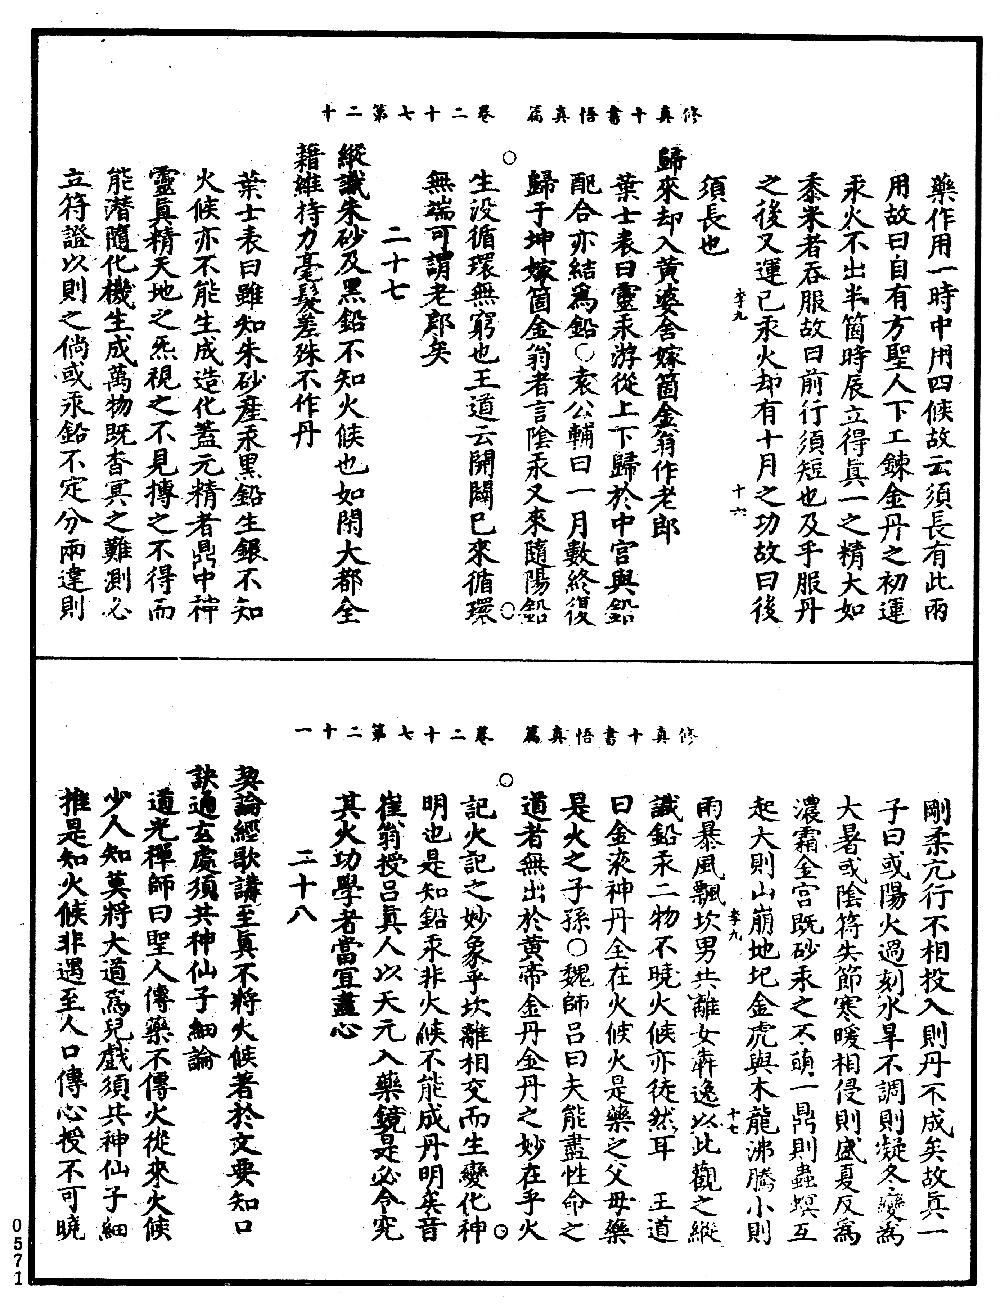 修真十書悟真篇　卷二十七第二十
藥作用一時中用四候故云須長有此兩
用故曰自有方聖人下工鍊金丹之初運
汞火不出半箇時辰立得眞一之精大如
黍米者吞服故曰前行須短也及乎服丹
之後又運己汞火却有十月之功故曰後
李九　十六
須長也
歸來却入黃婆舍嫁箇金翁作老郎
葉士表曰靈汞游從上下歸於中宮與鉛
配合亦結爲鉛○袁公輔曰一月數終復
歸于坤嫁箇金翁者言陰汞又來隨陽鉛
生没循環無窮也王道云開闢已來循環
無端可謂老郎矣
二十七
縱識朱砂及黑鉛不知火候也如閑大都全
藉維持力毫髮差殊不作丹
葉士表曰雖知朱砂產汞黑鉛生銀不知
火候亦不能生成造化蓋元精者鼎中神
靈眞精天地之炁視之不見摶之不得而
能潛隨化機生成萬物既杳冥之難測必
立符證以則之倘或汞鉛不定分兩違則
修真十書悟真篇　卷二十七第二十一
剛柔亢行不相投入則丹不成矣故眞一
子曰或陽火過刻水旱不調則凝冬變爲
大暑或陰符失節寒暖相侵則盛夏反爲
濃霜金宮既砂汞之不萌一鼎則蟲螟互
起大則山崩地圮金虎與木龍沸騰小則
李九　十七
雨暴風飄坎男共離女犇逸以此觀之縱
識鉛汞二物不曉火候亦徒然耳　王道
曰金液神丹全在火候火是藥之父母藥
是火之子孫○魏師呂曰夫能盡性命之
道者無出於黃帝金丹金丹之妙在乎火
記火記之妙象乎坎離相交而生變化神
明也是知鉛汞非火候不能成丹明矣昔
崔翁授呂眞人以天元入藥鏡是必令究
其火功學者當宜盡心
二十八
契論經歌講至眞不將火候著於文要知口
訣通玄處須共神仙子細論
道光禪師曰聖人傳藥不傳火從來火候
少人知莫將大道爲兒戲須共神仙子細
推是知火候非遇至人口傳心授不可曉
0571